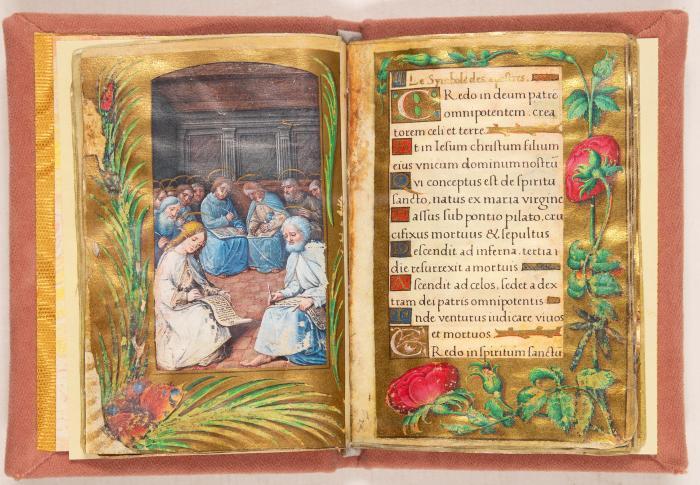 Le Symbole des apostres.
CRedo in deum patre
omnipotentem: crea
torem celi et terre.
Et in Iesum christum filium
eius vnicum dominum nostrũ
Qvi conceptus est de spiritu
sancto, natus ex maria virgine
Passus sub pontio pilato, cru
cifixus mortuus & sepultus
Descendit ad inferna. tertia
die resurrexit a mortuis
Ascendit ad celos, sedet a dex
tram dei patris omnipotentis
Inde venturus iudicare viuos
et mortuos.
CRedo in spiritum sanctũ